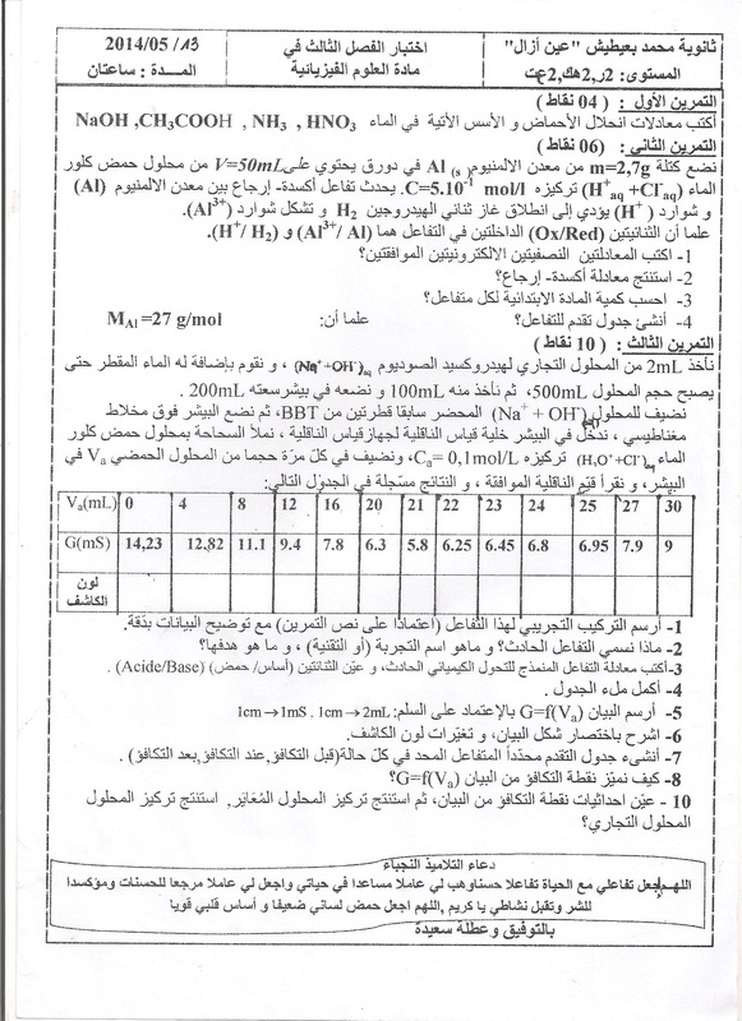 ثانوية محمد بعيطيش "عين أزال"
المستوى: 2ر,2هك,2عت
اختبار الفصل الثالث في
مادة العلوم الفيزيائية
2014/05/13
المـــدة : ساعتان
التمرين الأول : (04 نقاط)
أكتب معادلات انحلال الأحماض و الأسس الأتية في الماء NaOH ,CH₃COOH , NH₃ , HNO₃
التمرين الثاني : (06 نقاط)
نضع كتلة m=2,7g من معدن الالمنيوم Al (s) في دورق يحتوي على V=50mL من محلول حمض كلور
الماء (H⁺aq +Cl⁻aq) تركيزه C=5.10⁻¹ mol/l. يحدث تفاعل أكسدة- إرجاع بين معدن الالمنيوم (Al)
و شوارد (H⁺) يؤدي إلى انطلاق غاز ثنائي الهيدروجين H₂ و تشكل شوارد (Al³⁺).
علما أن الثنائيتين (Ox/Red) الداخلتين في التفاعل هما (Al³⁺/ Al) و (H⁺/ H₂).
1- اكتب المعادلتين النصفيتين الالكترونيتين الموافقتين؟
2- استنتج معادلة أكسدة- إرجاع؟
3- احسب كمية المادة الابتدائية لكل متفاعل؟
4- أنشئ جدول تقدم للتفاعل؟ علما أن: M_Al =27 g/mol
التمرين الثالث : (10 نقاط)
نأخذ 2mL من المحلول التجاري لهيدروكسيد الصوديوم (Na⁺+OH⁻)aq ، و نقوم بإضافة له الماء المقطر حتى
يصبح حجم المحلول 500mL، ثم نأخذ منه 100mL و نضعه في بيشرسعته 200mL .
نضيف للمحلول (Na⁺ + OH⁻)(aq) المحضر سابقا قطرتين من BBT، ثم نضع البيشر فوق مخلاط
مغناطيسي ، ندخل في البيشر خلية قياس الناقلية لجهازقياس الناقلية ، نملأ السحاحة بمحلول حمض كلور
الماء (H₃O⁺+Cl⁻)aq تركيزه Ca= 0,1mol/L، ونضيف في كل مرّة حجما من المحلول الحمضي Va في
البيشر، و نقرأ قيّم الناقلية الموافقة ، و النتائج مسّجلة في الجدول التالي:
Va(mL) 0 4 8 12 16 20 21 22 23 24 25 27 30
G(mS) 14,23 12.82 11.1 9.4 7.8 6.3 5.8 6.25 6.45 6.8 6.95 7.9 9
لون
الكاشف
1- أرسم التركيب التجريبي لهذا التفاعل (اعتمادًا على نص التمرين) مع توضيح البيانات بدّقة.
2- ماذا نسمي التفاعل الحادث؟ و ماهو اسم التجربة (أو التقنية) ، و ما هو هدفها؟
3-أكتب معادلة التفاعل المنمذج للتحول الكيميائي الحادث، و عيّن الثنائتين (أساس/ حمض) (Acide/Base) .
4- أكمل ملء الجدول .
5- أرسم البيان G=f(Va) بالإعتماد على السلم: 1cm→1mS . 1cm→2mL
6- اشرح باختصار شكل البيان، و تغيّرات لون الكاشف.
7- أنشىء جدول التقدم محدّداً المتفاعل المحد في كلّ حالة(قبل التكافؤ,عند التكافؤ,بعد التكافؤ) .
8- كيف نميّز نقطة التكافؤ من البيان G=f(Va)؟
10 - عيّن احداثيات نقطة التكافؤ من البيان، ثم استنتج تركيز المحلول المُعَايَر, استنتج تركيز المحلول
المحلول التجاري؟
دعاء التلاميذ النجباء
اللهم إجعل تفاعلي مع الحياة تفاعلا حسناوهب لي عاملا مساعدا في حياتي واجعل لي عاملا مرجعا للحسنات ومؤكسدا
للشر وتقبل نشاطي يا كريم ,اللهم اجعل حمض لساني ضعيفا و أساس قلبي قويا
بالتوفيق و عطلة سعيدة